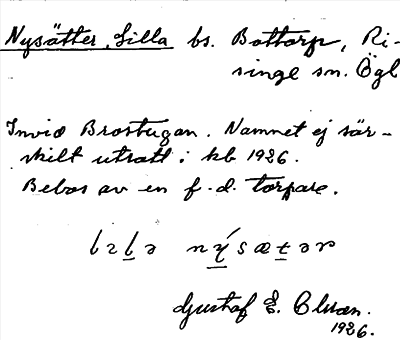 Nysätter, Lilla bs. Bottorp, Ri-
singe sn. Ögl
Invid Brostugan. Namnet ej sär-
skilt utsatt i kb 1926.
Bebos av en f.d. torpare.
Gustaf E. Olsson.
1926.